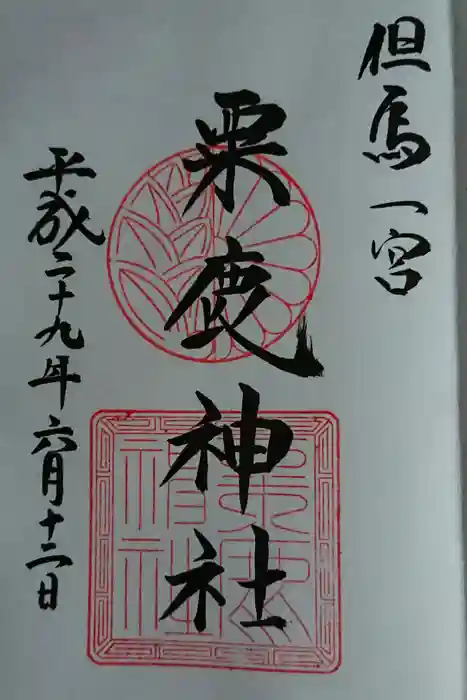 但馬一宮
粟鹿神社
平成二十九年六月十二日
粟鹿神社